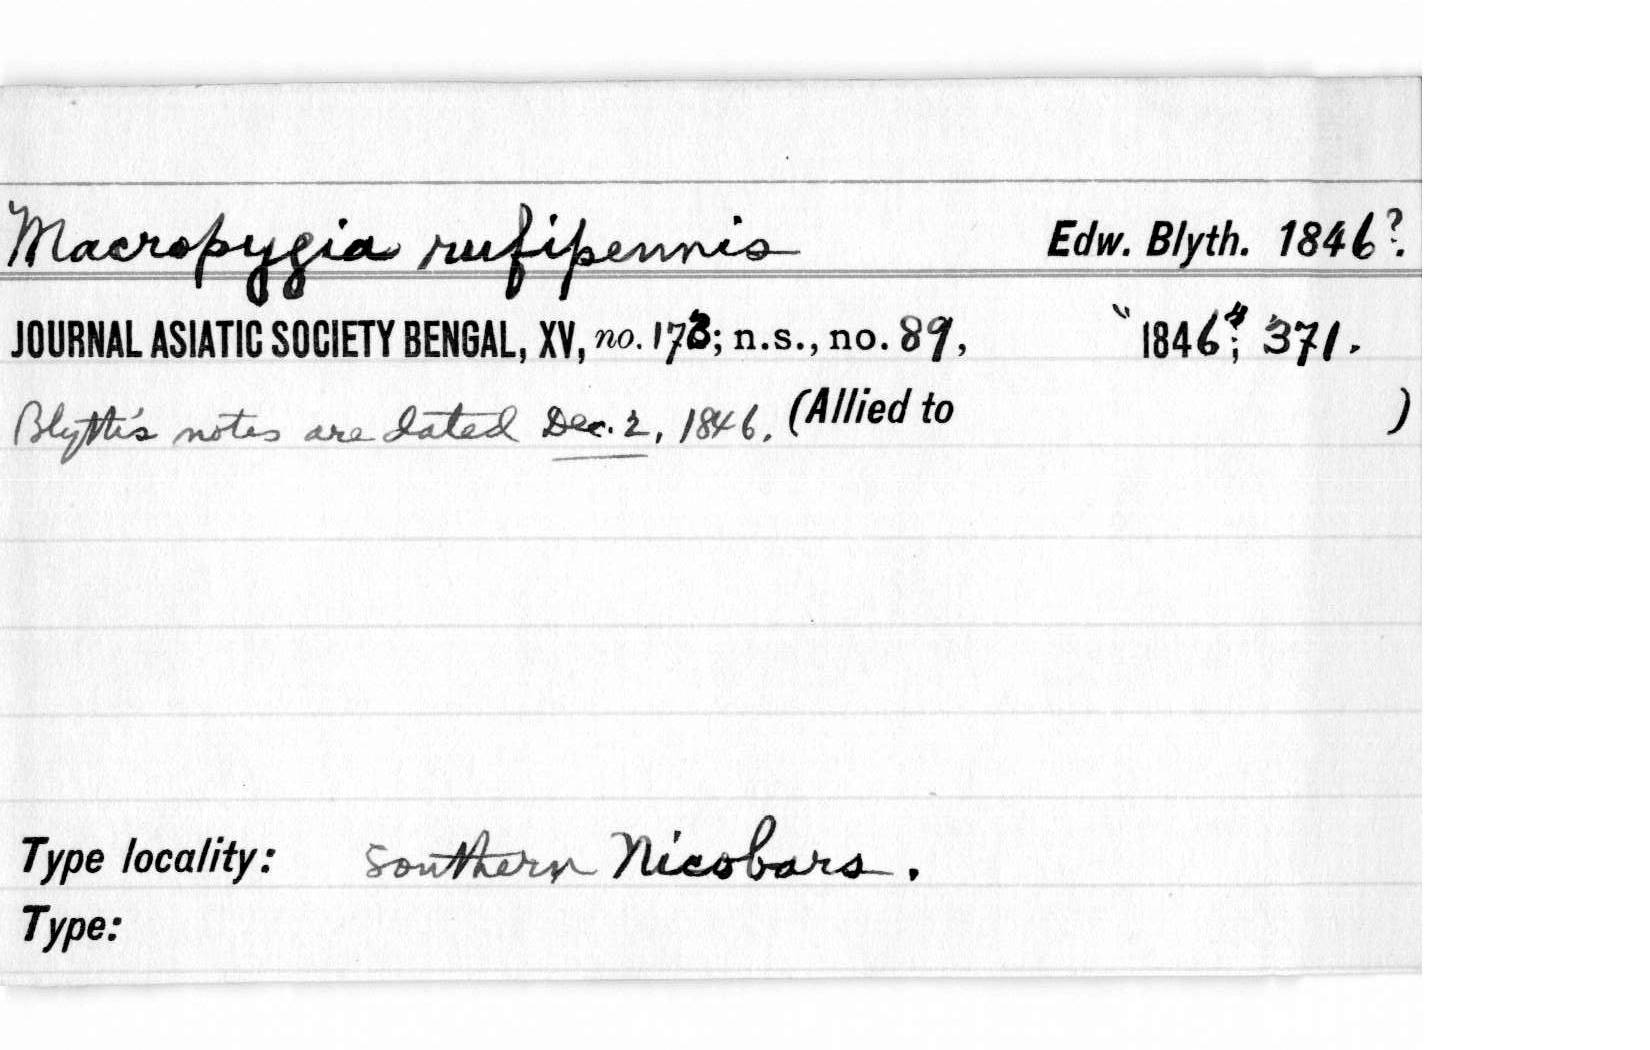 Macropygia rufipennis Edw. Blyth. 1846?.
JOURNAL ASIATIC SOCIETY BENGAL, XV, no. 173; n.s., no. 89, "1846"; 371.
Blyth's notes are dated Dec. 2, 1846. (Allied to )
Type locality: southern Nicobars.
Type: